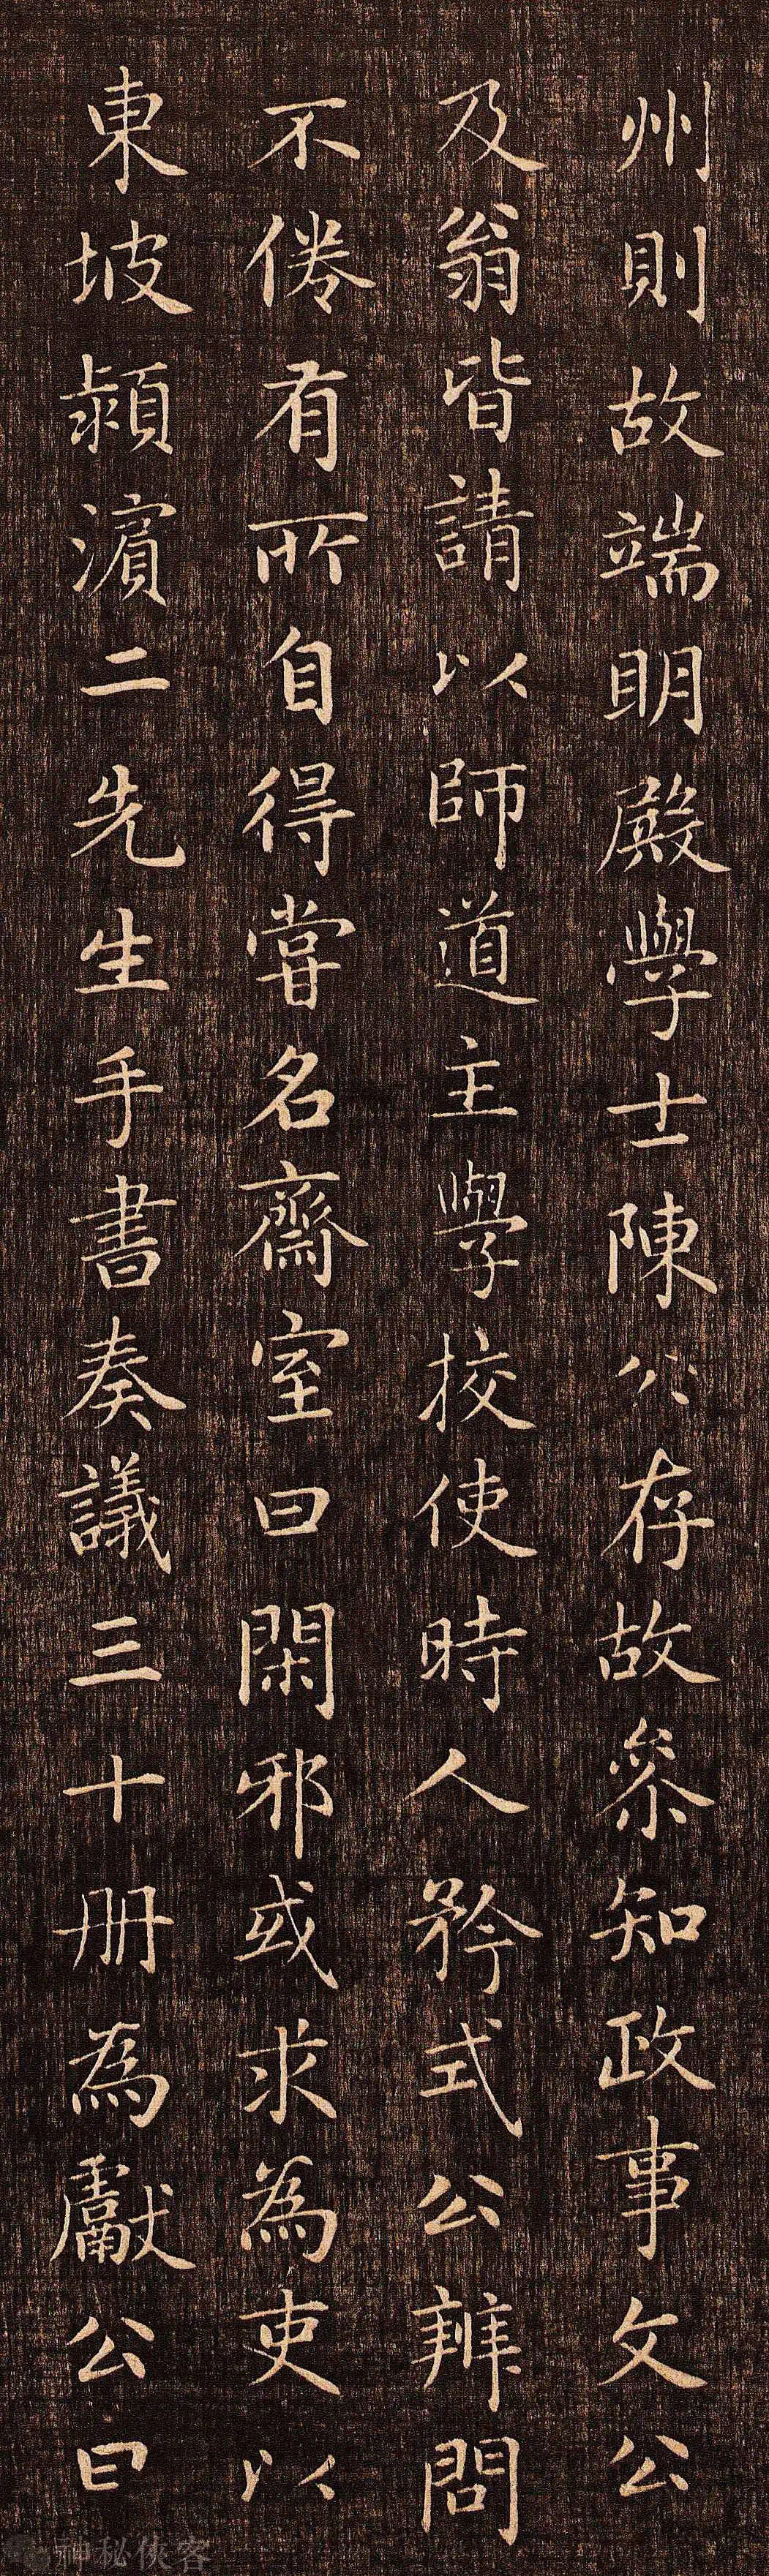 州則故端明殿學士陳公存故叅知政事文公
及翁皆請以師道主學校使時人矜式公辨問
不倦有所自得嘗名齋室曰閑邪或求為吏以
東坡頴濵二先生手書奏議三十册為獻公曰
神秘俠客